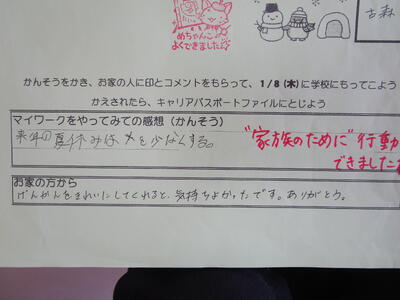 めちゃんこ
よくできました
古森
かんそうをかき、お家の人に印とコメントをもらって、1/8(木)に学校にもってこよう
かえされたら、キャリアパスポートファイルにとじよう
マイワークをやってみての感想(かんそう)
来年の夏休みは、×を少なくする。
"家族のために"行動
できました
お家の方から
げんかんをきれいにしてくれると、気持ちよかったです。ありがとう。